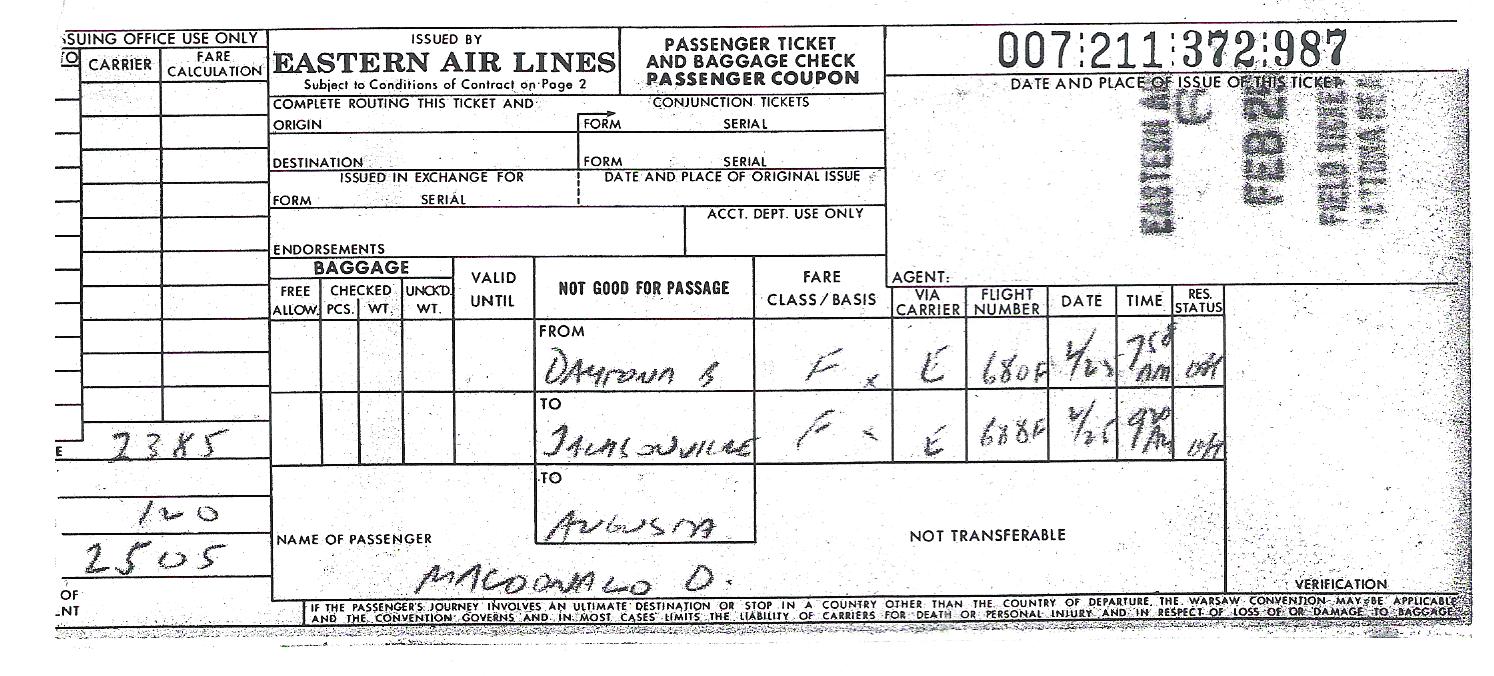 SUING OFFICE USE ONLY
TO CARRIER FARE CALCULATION
2385
120
2505
OF
NT
ISSUED BY
EASTERN AIR LINES
Subject to Conditions of Contract on Page 2
PASSENGER TICKET
AND BAGGAGE CHECK
PASSENGER COUPON
007:211:372:987
DATE AND PLACE OF ISSUE OF THIS TICKET
EASTERN A
FEB 2
FIELD
COMPLETE ROUTING THIS TICKET AND CONJUNCTION TICKETS
ORIGIN FORM SERIAL
DESTINATION FORM SERIAL
ISSUED IN EXCHANGE FOR DATE AND PLACE OF ORIGINAL ISSUE
FORM SERIAL
ACCT. DEPT. USE ONLY
ENDORSEMENTS
AGENT:
BAGGAGE
FREE ALLOW. CHECKED PCS. WT. UNCK'D. WT.
VALID UNTIL
NOT GOOD FOR PASSAGE
FARE CLASS/BASIS
VIA CARRIER FLIGHT NUMBER DATE TIME RES. STATUS
FROM
DAYTONA B F x E 680F 2/25 758 AM
TO
JACKSONVILLE F x E 688F 2/25 920 AM
TO
AUGUSTA
NAME OF PASSENGER
MACDONALD D.
NOT TRANSFERABLE
VERIFICATION
IF THE PASSENGER'S JOURNEY INVOLVES AN ULTIMATE DESTINATION OR STOP IN A COUNTRY OTHER THAN THE COUNTRY OF DEPARTURE, THE WARSAW CONVENTION MAY BE APPLICABLE
AND THE CONVENTION GOVERNS AND IN MOST CASES LIMITS THE LIABILITY OF CARRIERS FOR DEATH OR PERSONAL INJURY AND IN RESPECT OF LOSS OF OR DAMAGE TO BAGGAGE